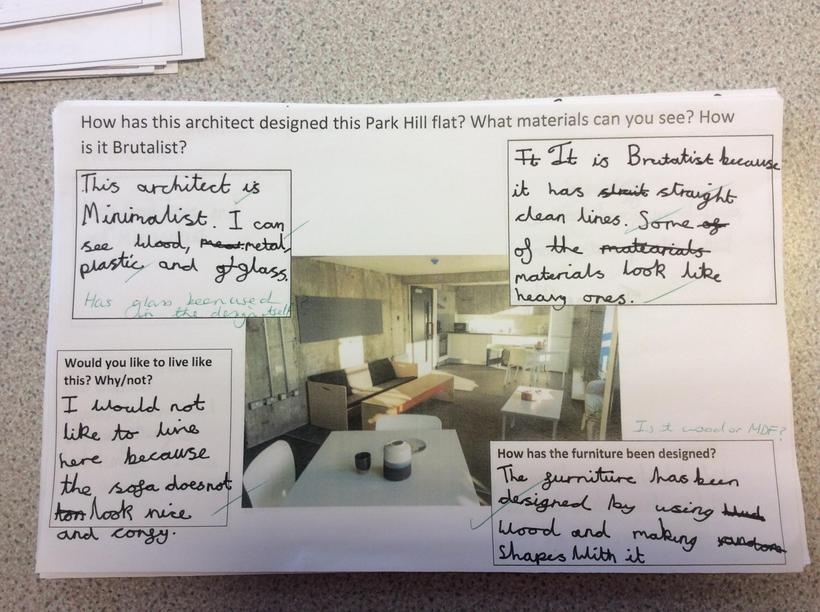 How has this architect designed this Park Hill flat? What materials can you see? How
is it Brutalist?
This architect is
Minimalist. I can
see wood, metal,
plastic and glass.
Has glass been used
in the design itself?
It It is Brutatist because
it has struit straight
clean lines. Some of
of the matearials
materials look like
heavy ones.
Would you like to live like
this? Why/not?
I would not
like to live
here because
the sofa does not
look nice
and congy.
Is it wood or MDF?
How has the furniture been designed?
The furniture has been
designed by using
wood and making
shapes with it